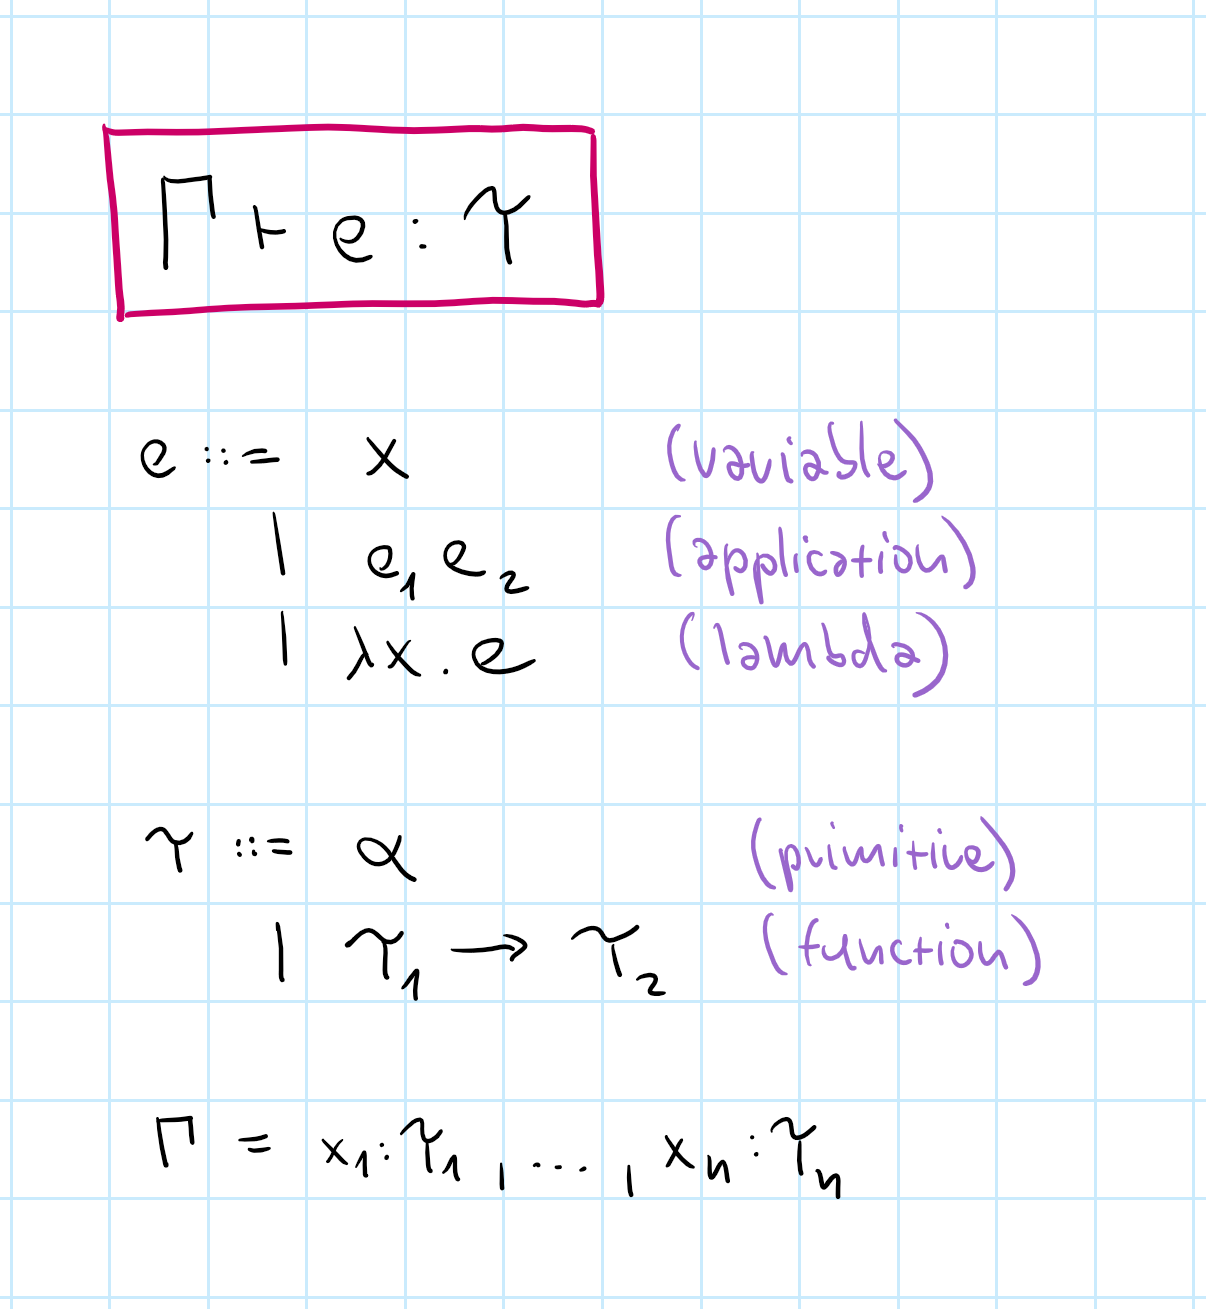 Γ ⊢ e : τ
e ::= x (variable)
| e₁ e₂ (application)
| λx . e (lambda)
τ ::= α (primitive)
| τ₁ → τ₂ (function)
Γ = x₁ : τ₁ , ... , xₙ : τₙ